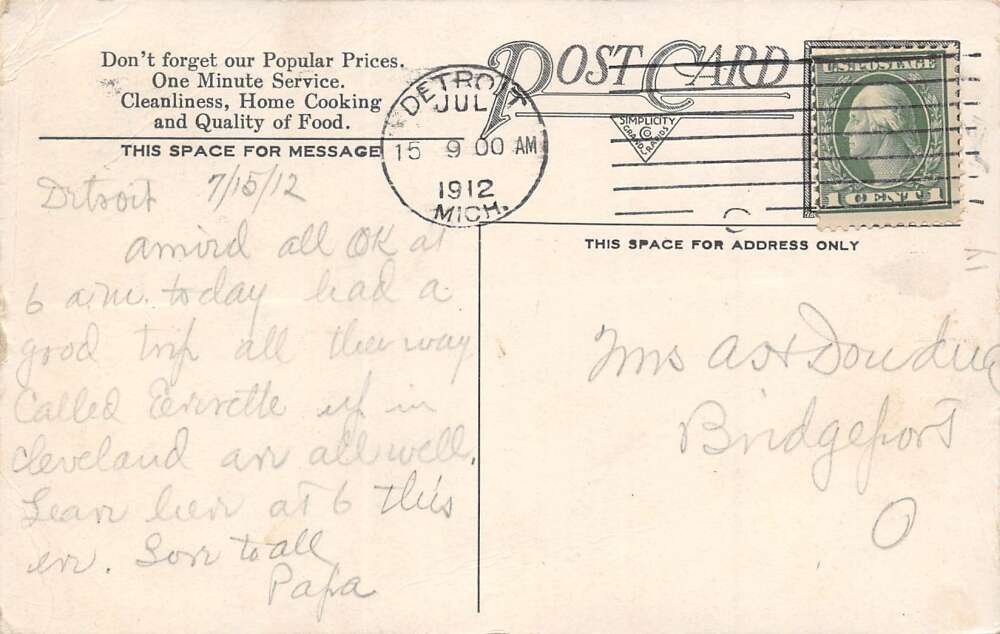 Don't forget our Popular Prices.
One Minute Service.
Cleanliness, Home Cooking
and Quality of Food.
THIS SPACE FOR MESSAGE
POST CARD
SIMPLICITY
CO
GRAND RAPIDS
DETROIT
JUL
15 9 00 AM
1912
MICH.
U.S. POSTAGE
1 CENT 1
THIS SPACE FOR ADDRESS ONLY
Detroit 7/15/12
arrived all OK at
6 a.m. today had a
good trip all the way
Called Everette up in
cleveland are all well.
Leave here at 6 this
eve. Love to all
Papa
Mrs
Bridgeport
O